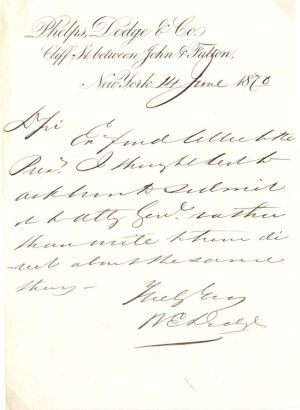 Phelps, Dodge & Co.
Cliff St. between John & Fulton,
New York 14 June 1870
D Sir
Enc find letter to the
Prest. I thought best to
ask him to submit
it to Atty Genl. rather
than write to him di
-rect about the same
thing -
Truly Yours
W E Dodge